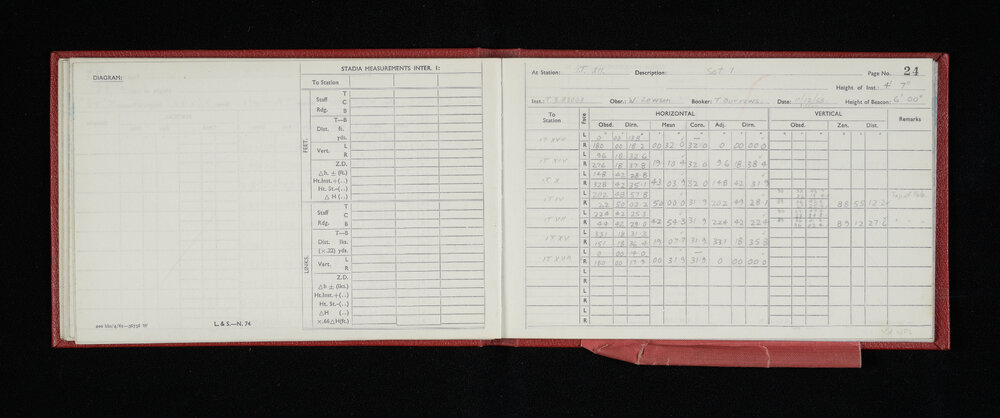 DIAGRAM:
STADIA MEASUREMENTS INTER. 1:
To Station
FEET.
Staff T
C
Rdg. B
T—B
Dist. ft.
yds.
Vert. L
R
Z.D.
△h. ± (ft.)
Ht.Inst.+(..)
Ht. St.–(..)
△ H (..)
LINKS.
Staff T
C
Rdg. B
T—B
Dist. lks.
(×.22) yds.
Vert. L
R
Z.D.
△h ± (lks.)
Ht.Inst.+(..)
Ht. St.–(..)
△H (..)
×.66△H(ft.)
L. & S.—N. 74
At Station: Description: Set 1 Page No. 24
Height of Inst.: 4' 7"
Inst.: Obsr.: W. Booker: T. Date: Height of Beacon: 6' 00"
To Station Face HORIZONTAL VERTICAL Remarks
Obsd. Dirn. Mean Corrn. Adj. Dirn. Obsd. Zen. Dist.
IT XVII L 0° 00' 13.8"
R 180 00 18.2 00 32.0 32.0 0 00 00.0
IT XIV L 96 18 32.6
R 276 18 37.8 19 10.4 32.0 96 18 38.4
IT X L 148 42 28.8
R 328 42 35.1 43 03.9 32.0 148 42 31.9
IT IV L 202 49 57.8
R 22 50 02.2 50 00.0 31.9 202 49 28.1 88 55 12
IT VII L 224 42 25.3
R 44 42 29.0 42 54.3 31.9 224 42 22.4 89 12 27.6
IT XV L 331 18 31.3
R 151 18 36.4 19 07.7 31.9 331 18 35.8
IT XVII L 0 00 14.0
R 180 00 17.9 00 31.9 31.9 0 00 00.0
L
R
L
R
L
R
L
R